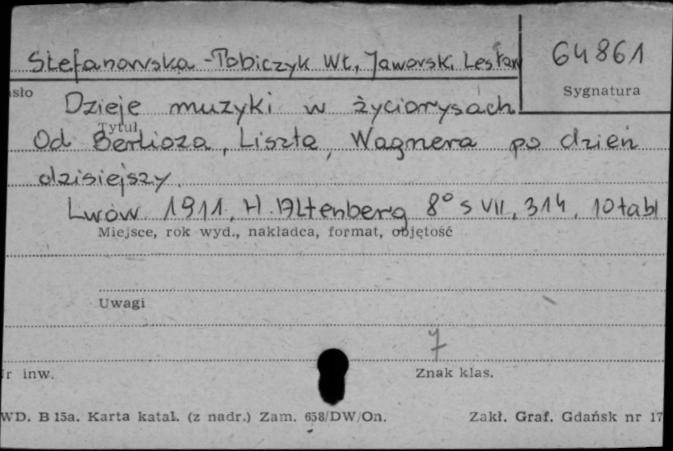 Stefanowska-Tobiczyk Wł., Jaworski Lesław
64861
Sygnatura
sło
Dzieje muzyki w życiorysach
Tytuł
Od Berlioza, Liszta, Wagnera po dzień
dzisiejszy.
Lwów 1911, H. Altenberg 8° s VII, 314, 10 tabl
Miejsce, rok wyd., nakładca, format, objętość
Uwagi
7
r inw.
Znak klas.
WD. B 15a. Karta katal. (z nadr.) Zam. 658/DW/On.
Zakł. Graf. Gdańsk nr 17